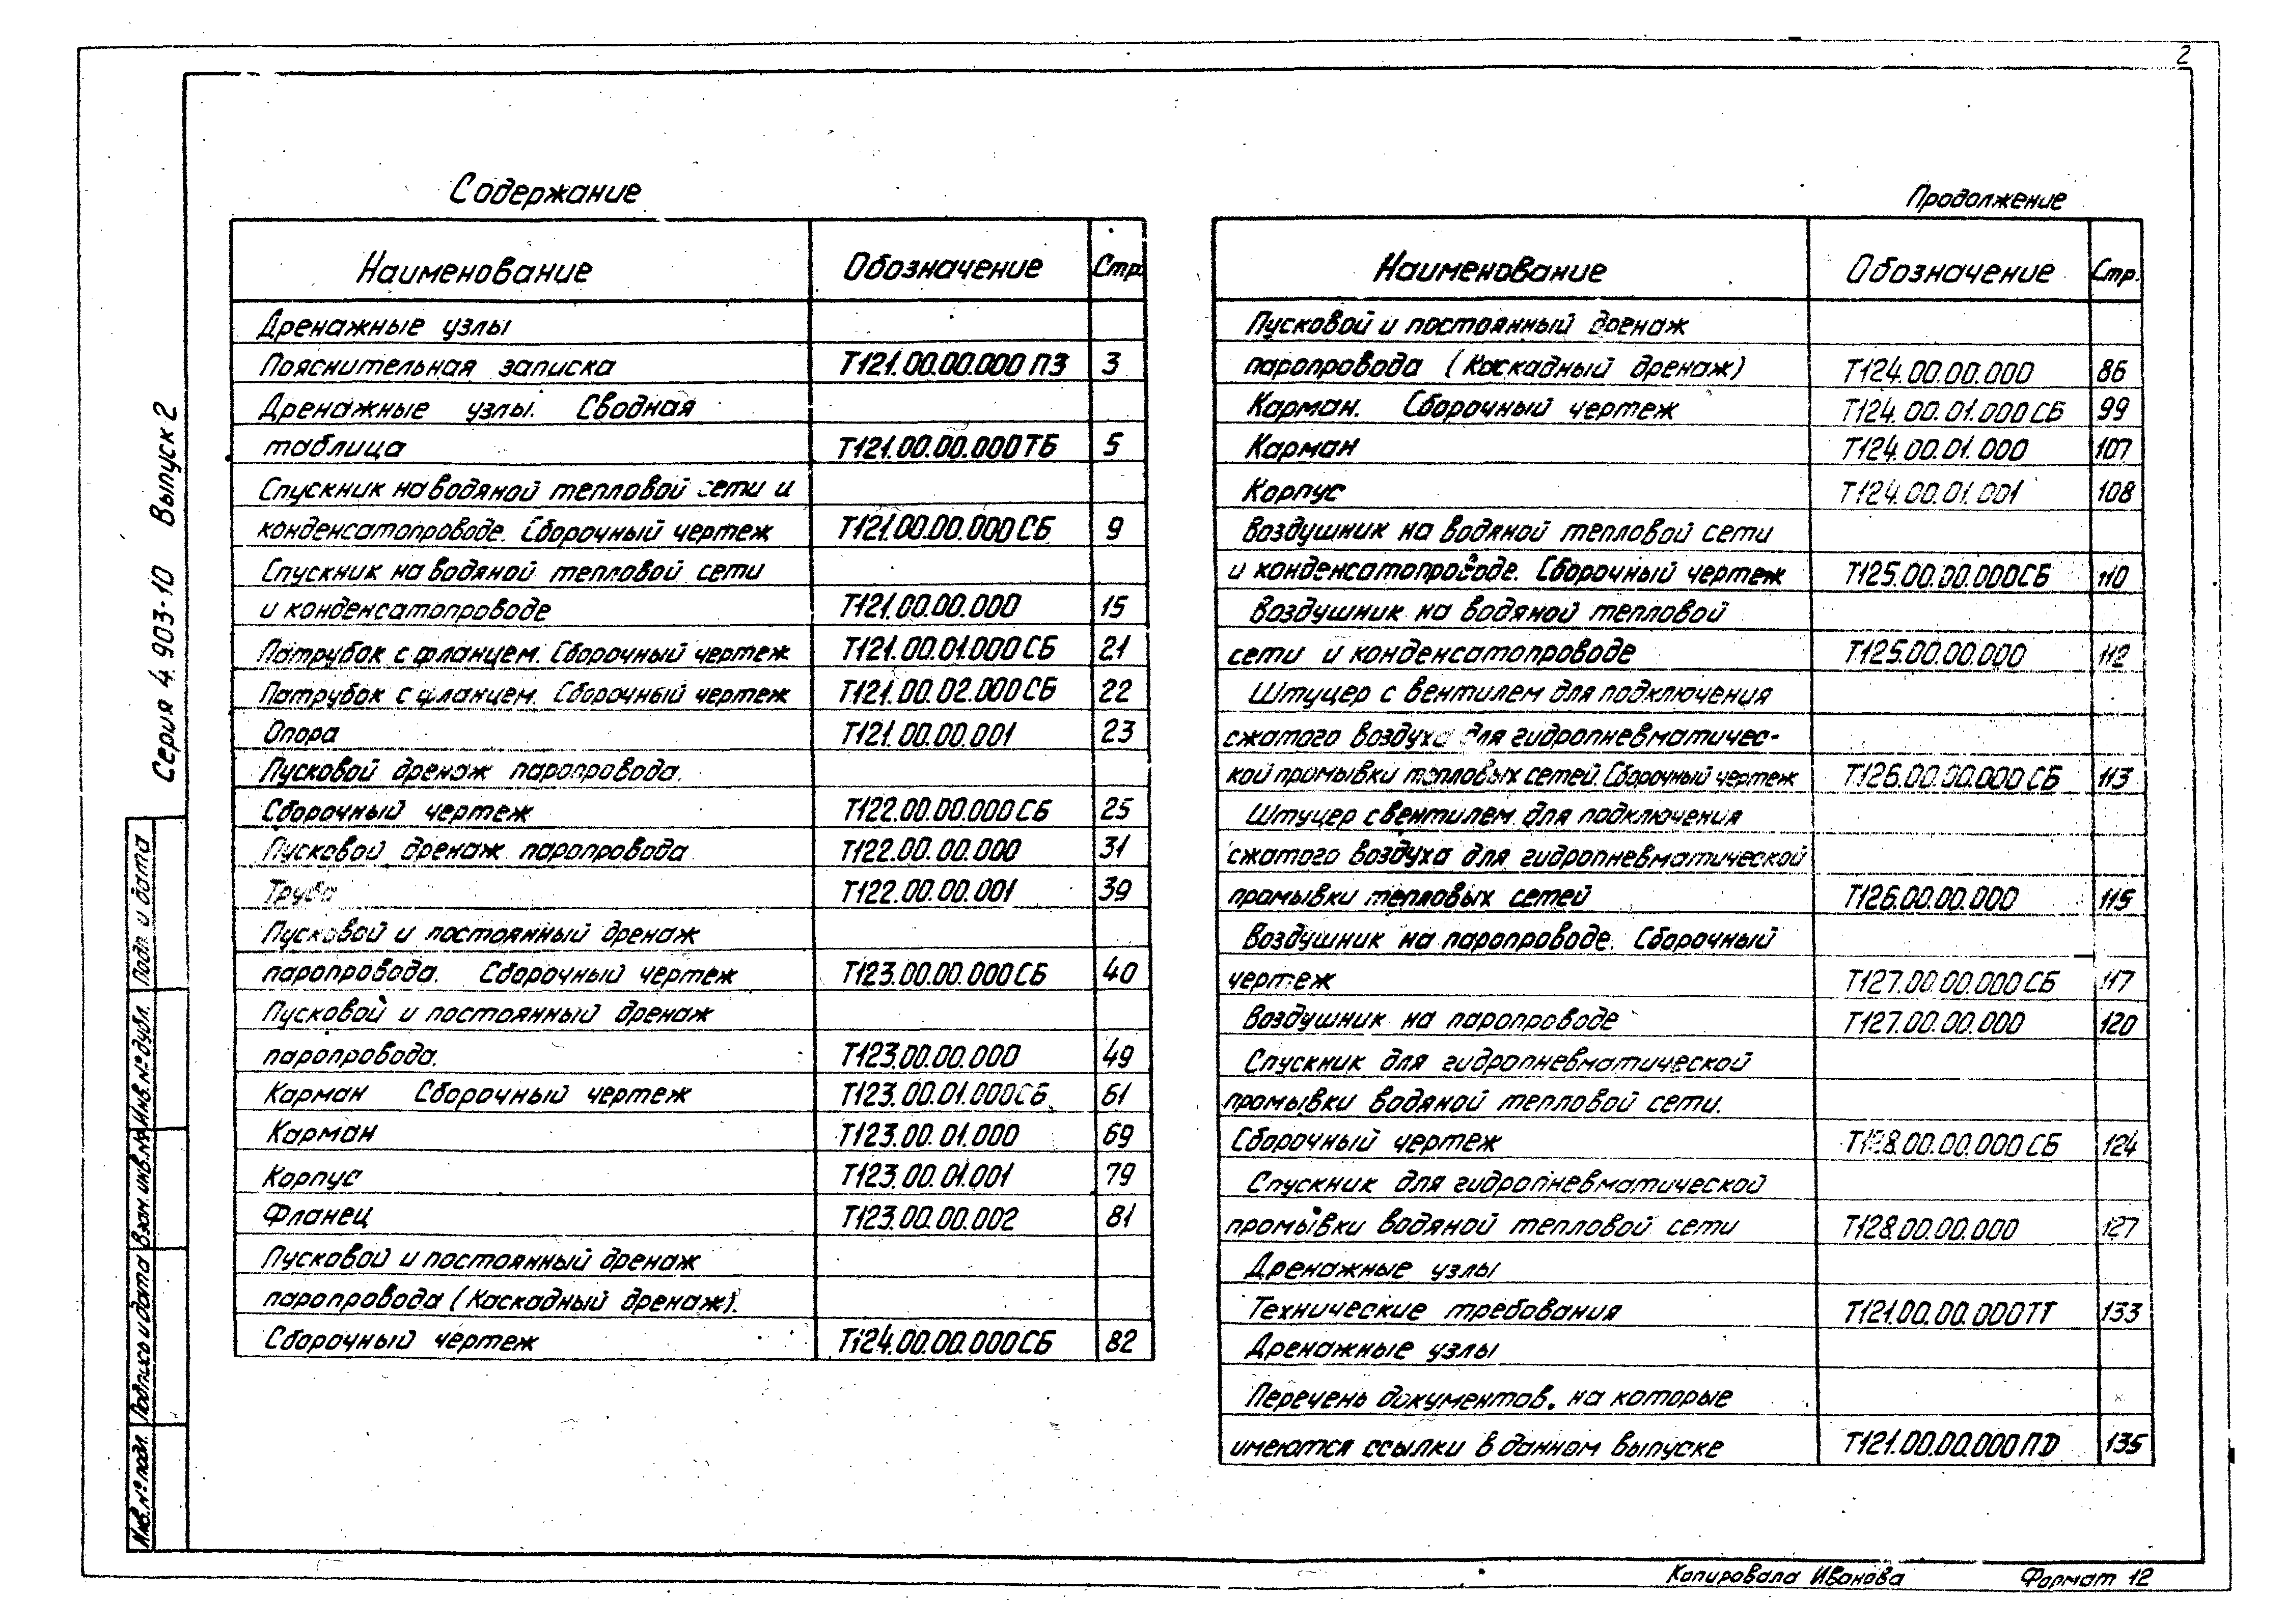 2
Содержание
Наименование Обозначение Стр.
Дренажные узлы
Пояснительная записка Т121.00.00.000 ПЗ 3
Дренажные узлы. Сводная
таблица Т121.00.00.000ТБ 5
Спускник на водяной тепловой сети и
конденсатопроводе. Сборочный чертеж Т121.00.00.000СБ 9
Спускник на водяной тепловой сети
и конденсатопроводе Т121.00.00.000 15
Патрубок с фланцем. Сборочный чертеж Т121.00.01.000СБ 21
Патрубок с фланцем. Сборочный чертеж Т121.00.02.000СБ 22
Опора Т121.00.00.001 23
Пусковой дренаж паропровода.
Сборочный чертеж Т122.00.00.000СБ 25
Пусковой дренаж паропровода Т122.00.00.000 31
Труба Т122.00.00.001 39
Пусковой и постоянный дренаж
паропровода. Сборочный чертеж Т123.00.00.000СБ 40
Пусковой и постоянный дренаж
паропровода. Т123.00.00.000 49
Карман Сборочный чертеж Т123.00.01.000СБ 61
Карман Т123.00.01.000 69
Корпус Т123.00.01.001 79
Фланец Т123.00.00.002 81
Пусковой и постоянный дренаж
паропровода (Каскадный дренаж).
Сборочный чертеж Т124.00.00.000СБ 82
Продолжение
Наименование Обозначение Стр.
Пусковой и постоянный дренаж
паропровода (Каскадный дренаж) Т124.00.00.000 86
Карман. Сборочный чертеж Т124.00.01.000СБ 99
Карман Т124.00.01.000 107
Корпус Т124.00.01.001 108
Воздушник на водяной тепловой сети
и конденсатопроводе. Сборочный чертеж Т125.00.00.000СБ 110
Воздушник на водяной тепловой
сети и конденсатопроводе Т125.00.00.000 112
Штуцер с вентилем для подключения
сжатого воздуха для гидропневматичес-
кой промывки тепловых сетей. Сборочный чертеж Т126.00.00.000СБ 113
Штуцер с вентилем для подключения
сжатого воздуха для гидропневматической
промывки тепловых сетей Т126.00.00.000 115
Воздушник на паропроводе. Сборочный
чертеж Т127.00.00.000СБ 117
Воздушник на паропроводе Т127.00.00.000 120
Спускник для гидропневматической
промывки водяной тепловой сети.
Сборочный чертеж Т128.00.00.000СБ 124
Спускник для гидропневматической
промывки водяной тепловой сети Т128.00.00.000 127
Дренажные узлы
Технические требования Т121.00.00.000ТТ 133
Дренажные узлы
Перечень документов, на которые
имеются ссылки в данном выпуске Т121.00.00.000ПД 135
Серия 4.903-10 Выпуск 2
Подп. и дата
Инв. № дубл.
Взам. инв. №
Подпись и дата
Инв. № подл.
Копировала Иванова Формат 12